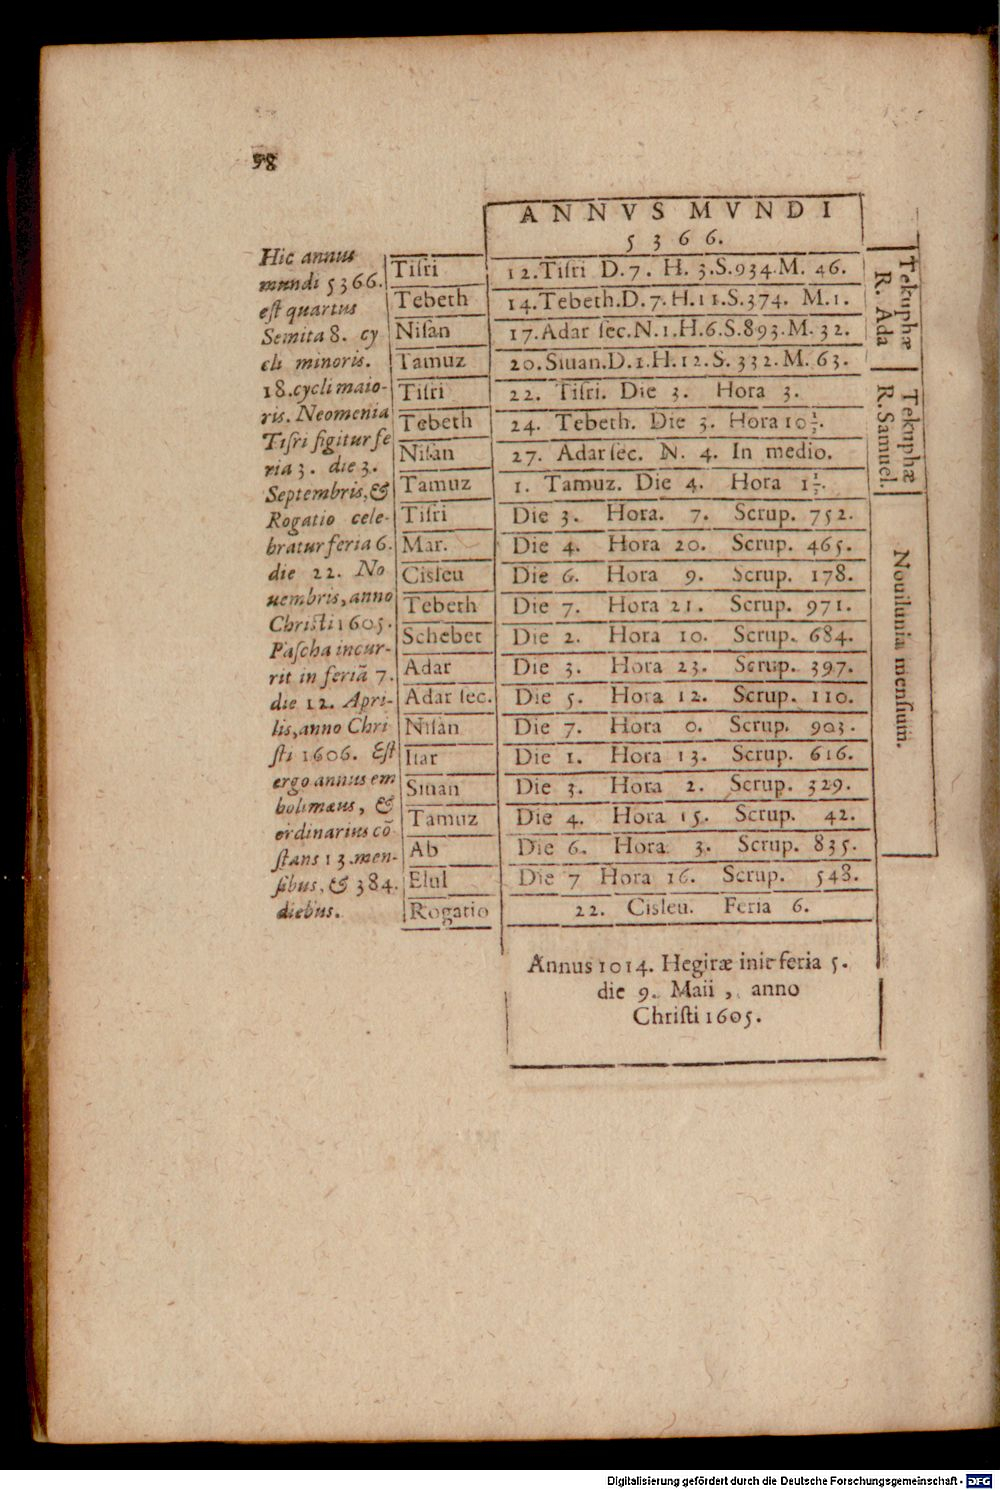 98
ANNVS MVNDI
5366.
Hic annus
mundi 5366.
eſt quartus
Semita 8. cy
cli minoris.
18.cycli maio-
ris. Neomenia
Tiſri figitur fe
ria 3. die 3.
Septembris, &
Rogatio cele-
bratur feria 6.
die 22. No
uembris, anno
Chriſti 1605.
Paſcha incur-
rit in feriã 7.
die 12. Apri-
lis, anno Chri
ſti 1606. Eſt
ergo annus em
bolimæus, &
ordinarius cõ
ſtans 13.men-
ſibus, & 384.
diebus.
Tiſri 12.Tiſri D.7. H. 3.S.934.M. 46.
Tebeth 14.Tebeth.D.7.H.11.S.374. M.1.
Niſan 17.Adar ſec.N.1.H.6.S.893.M.32.
Tamuz 20.Siuan.D.1.H.12.S.332.M.63.
Tekuphæ
R. Ada
Tiſri 22. Tiſri. Die 3. Hora 3.
Tebeth 24. Tebeth. Die 3. Hora 10 1/2.
Niſan 27. Adar ſec. N. 4. In medio.
Tamuz 1. Tamuz. Die 4. Hora 1 1/2.
Tekuphæ
R. Samuel.
Tiſri Die 3. Hora. 7. Scrup. 752.
Mar. Die 4. Hora 20. Scrup. 465.
Cisleu Die 6. Hora 9. Scrup. 178.
Tebeth Die 7. Hora 21. Scrup. 971.
Schebet Die 2. Hora 10. Scrup. 684.
Adar Die 3. Hora 23. Scrup. 397.
Adar ſec. Die 5. Hora 12. Scrup. 110.
Niſan Die 7. Hora 0. Scrup. 903.
Iiar Die 1. Hora 13. Scrup. 616.
Siuan Die 3. Hora 2. Scrup. 329.
Tamuz Die 4. Hora 15. Scrup. 42.
Ab Die 6. Hora 3. Scrup. 835.
Elul Die 7 Hora 16. Scrup. 548.
Rogatio 22. Cisleu. Feria 6.
Nouilunia menſium.
Annus 1014. Hegiræ init feria 5.
die 9. Maii, anno
Chriſti 1605.
Digitalisierung gefördert durch die Deutsche Forschungsgemeinschaft - DFG